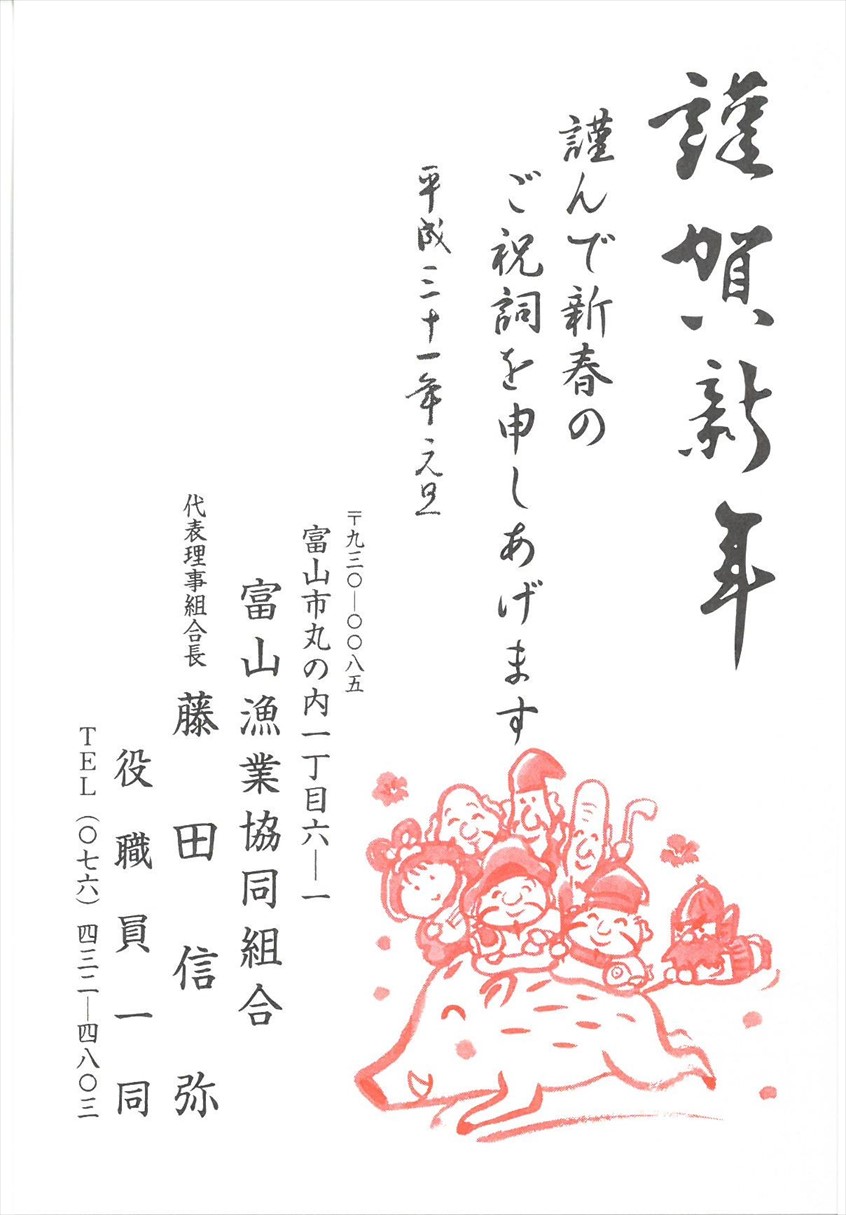 謹賀新年
謹んで新春の
ご祝詞を申しあげます
平成三十一年元旦
〒九三〇―〇〇八五
富山市丸の内一丁目六―一
富山漁業協同組合
代表理事組合長 藤田信弥
役職員一同
TEL(〇七六)四三二―四八〇三